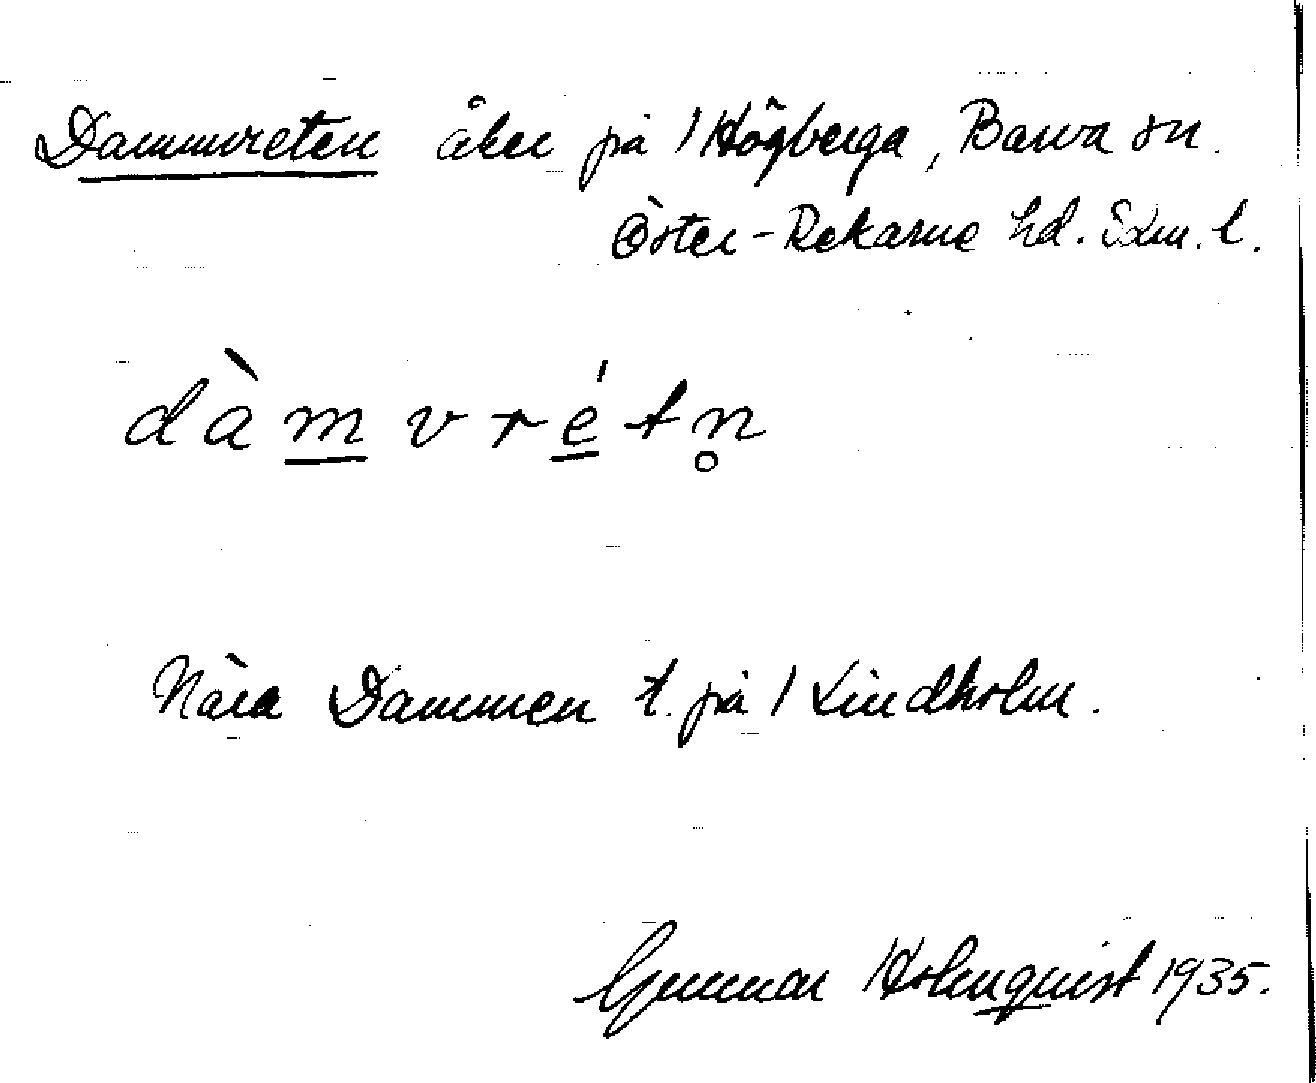 Dammvreten åker på Högberga, Barva sn.
Öster-Rekarne hd. Södm. l.
dàm̲vré̲tn̥
Nära Dammen t. på Lindholm.
Gunnar Holmquist 1935.